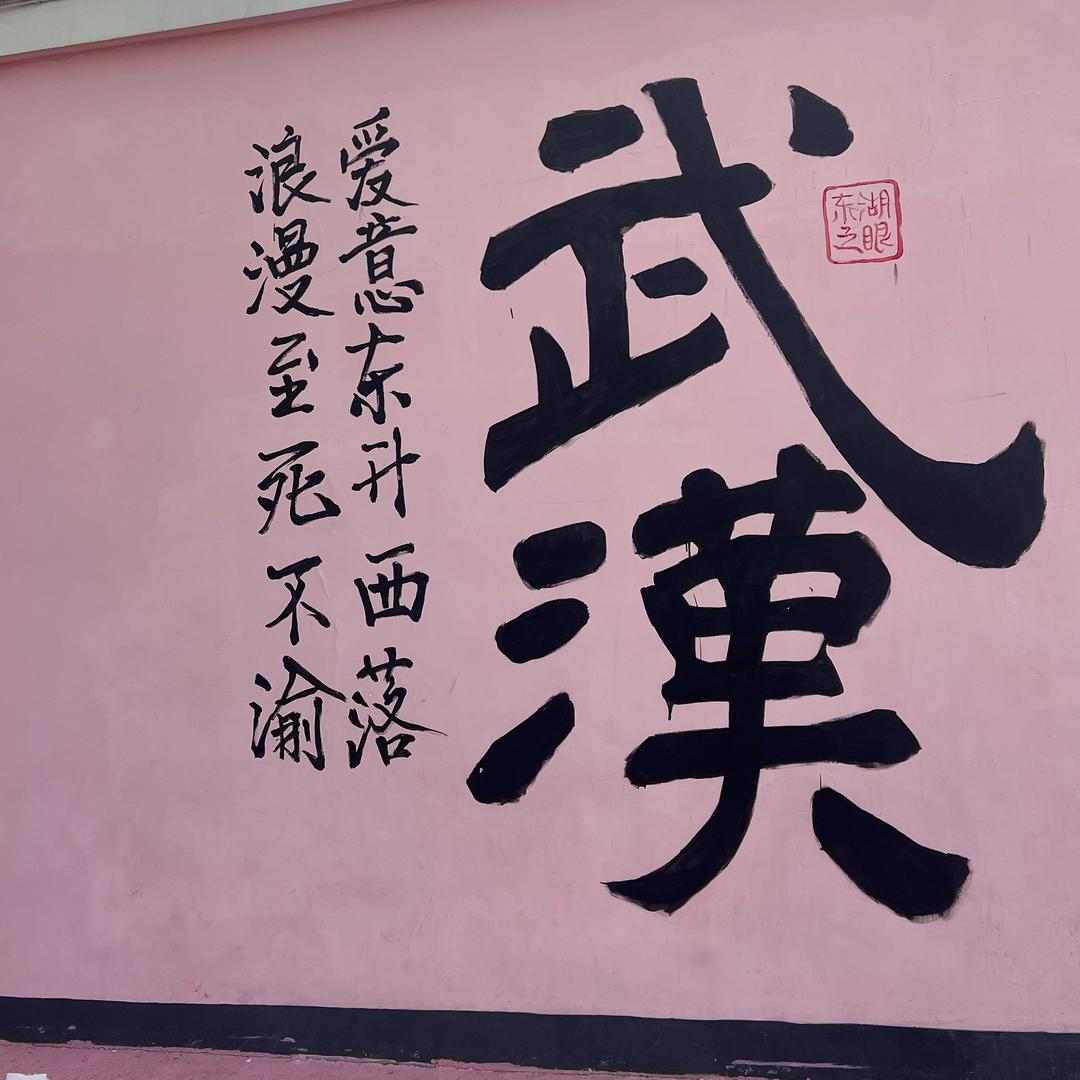 武漢
爱意东升西落
浪漫至死不渝
湖眼
东之